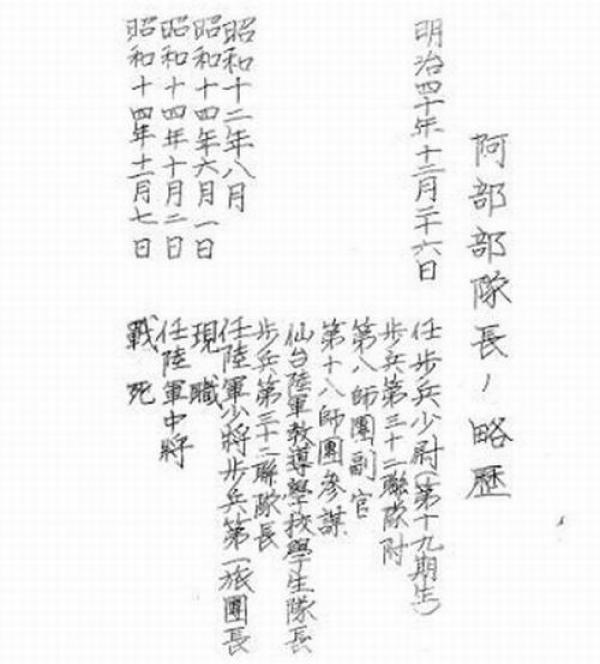 阿部部隊長ノ略歴
明治四十年十二月二十六日 任歩兵少尉(第十九期生)
歩兵第三十二聯隊附
第八師團副官
第十八師團参謀
仙台陸軍教導學校學生隊長
歩兵第三十二聯隊長
昭和十二年八月 任陸軍少將歩兵第一旅團長
昭和十四年六月一日 現職
昭和十四年十月二日 任陸軍中將
昭和十四年十一月七日 戰死